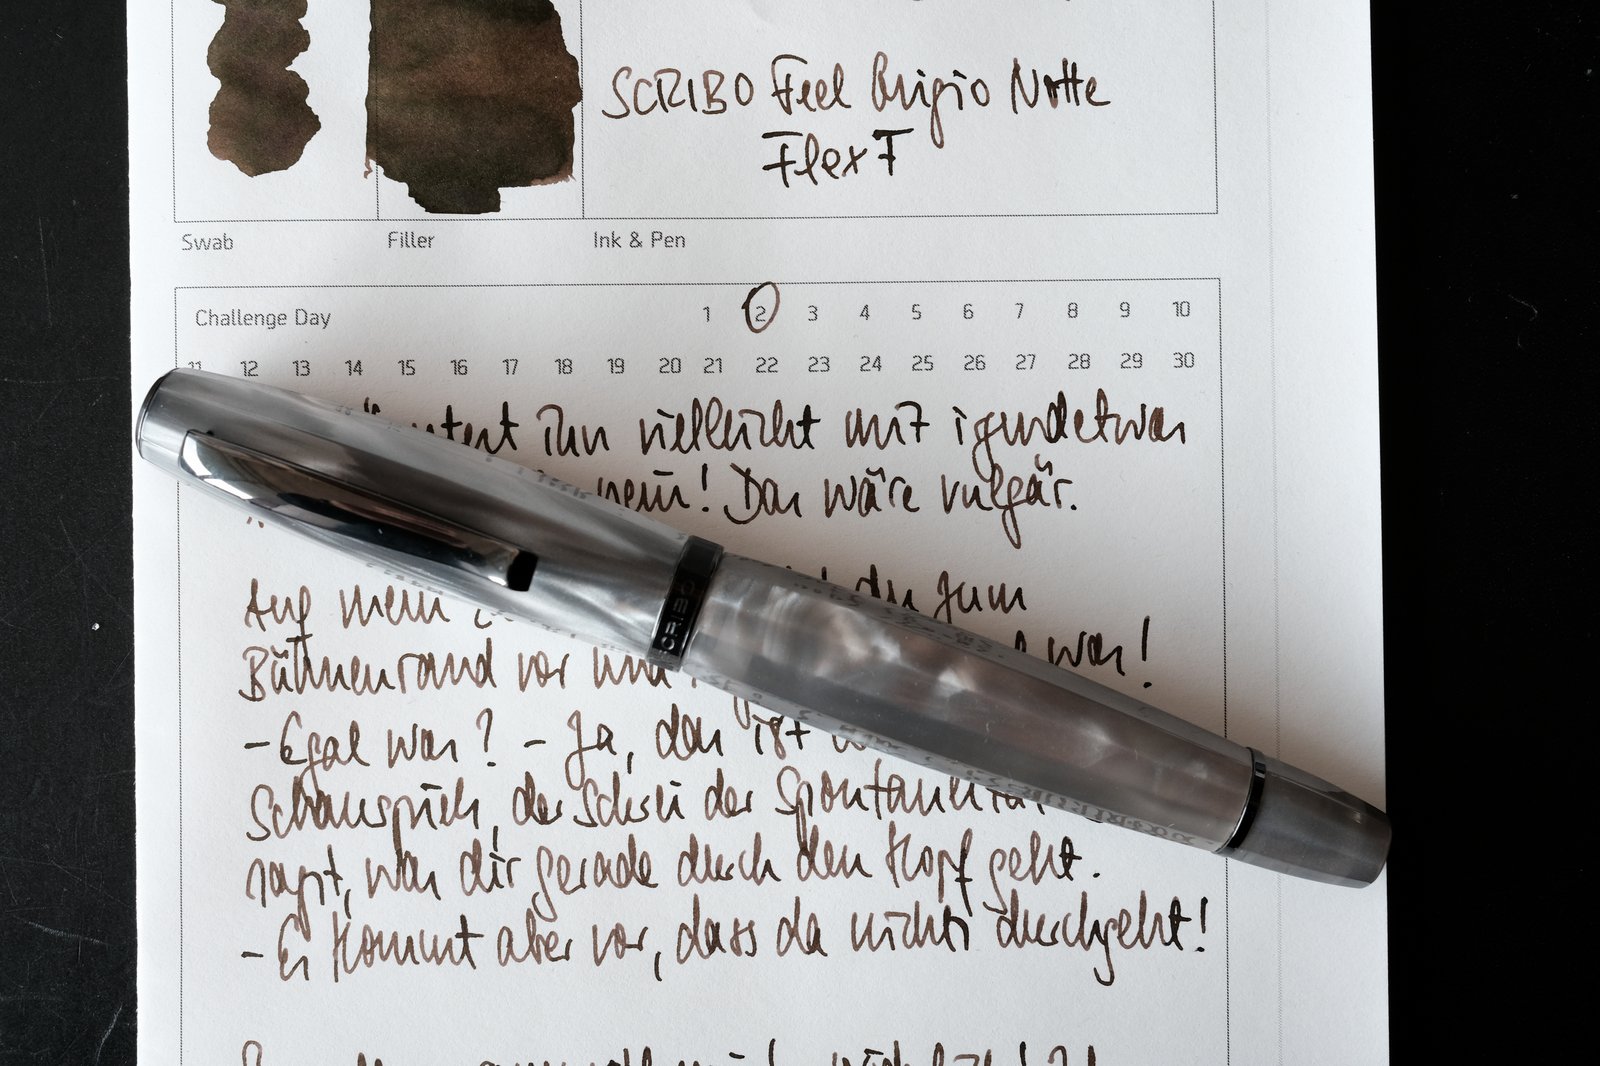 SCRIBO Feel Grigio Notte
Flex F
Swab
Filler
Ink & Pen
Challenge Day
1 2 3 4 5 6 7 8 9 10
11 12 13 14 15 16 17 18 19 20 21 22 23 24 25 26 27 28 29 30
ihn vielleicht mit irgendetwas
nein! Das wäre vulgär.
Auf mein du zum
Bühnenrand vor und was!
- Egal was? - Ja, das ist
Schauspiels, der Schrei der
sagst, was dir gerade durch den Kopf geht.
- Es kommt aber vor, dass da nichts durchgeht!
SCRIBO